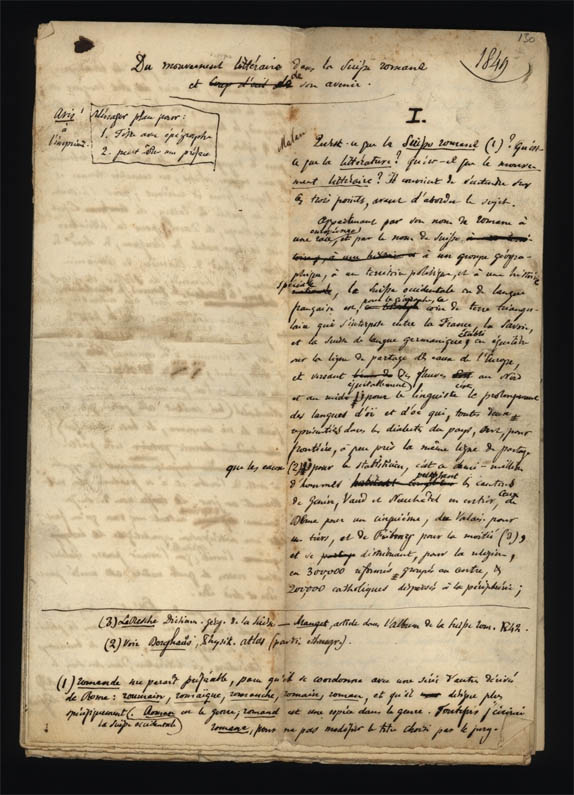 130
1849
Du mouvement littéraire dans la Suisse romane
et coup d'œil de son avenir.
Avis à l'imprimeur
Ménager place pour:
1. Titre avec épigraphe
2. peut être une préface
I.
Qu'est-ce que la Suisse romane (1)? Qu'est-
ce que la littérature? Qu'est-ce que le mouve-
ment littéraire? Il convient de s'entendre sur
ces trois points, avant d'aborder le sujet.
Appartenant par son nom de romane à
une race, et par le nom de Suisse
à un groupe géogra-
phique, à un territoire politique, et à une histoire
spéciale, la Suisse occidentale ou de langue
française est, pour le géographe, le coin de terre triangu-
laire qui s'interpose entre la France, la Savoie,
et la Suisse de langue germanique, établi en équilibre
sur la ligne de partage des eaux de l'Europe,
et versant ses fleuves au Nord
et au midi; pour le linguiste le prolongement
des langues d'oï et d'oc qui, toutes deux
représentées dans les dialectes du pays, ont, pour
frontière, à peu près la même ligne de partage
que les eaux (2); pour le statisticien, c'est un demi-million
d'hommes peuplant les cantons
de Genève, Vaud et Neuchâtel en entier, ceux de
Berne pour un cinquième, du Valais pour
un tiers, et de Fribourg pour la moitié (3),
et se divisant, pour la religion,
en 300,000 réformés groupés au centre, &
200,000 catholiques dispersés à la périphérie;
(3) Dictionn. géog. de la Suisse — Manget, article dans l'Album de la Suisse rom. 1842.
(2) Voir Berghaus, Physik. atlas (partie ethnogr.)
(1) romande me paraît préférable, pour qu'il se coordonne avec une série d'autres dérivés
de Rome: roumain, romaïque, romanche, romain, roman, et qu'il désigne plus
spécifiquement la Suisse occidentale. Roman est le genre, romand est une espèce dans le genre. Toutefois j'écrirai
romane, pour ne pas modifier le titre choisi par le jury.